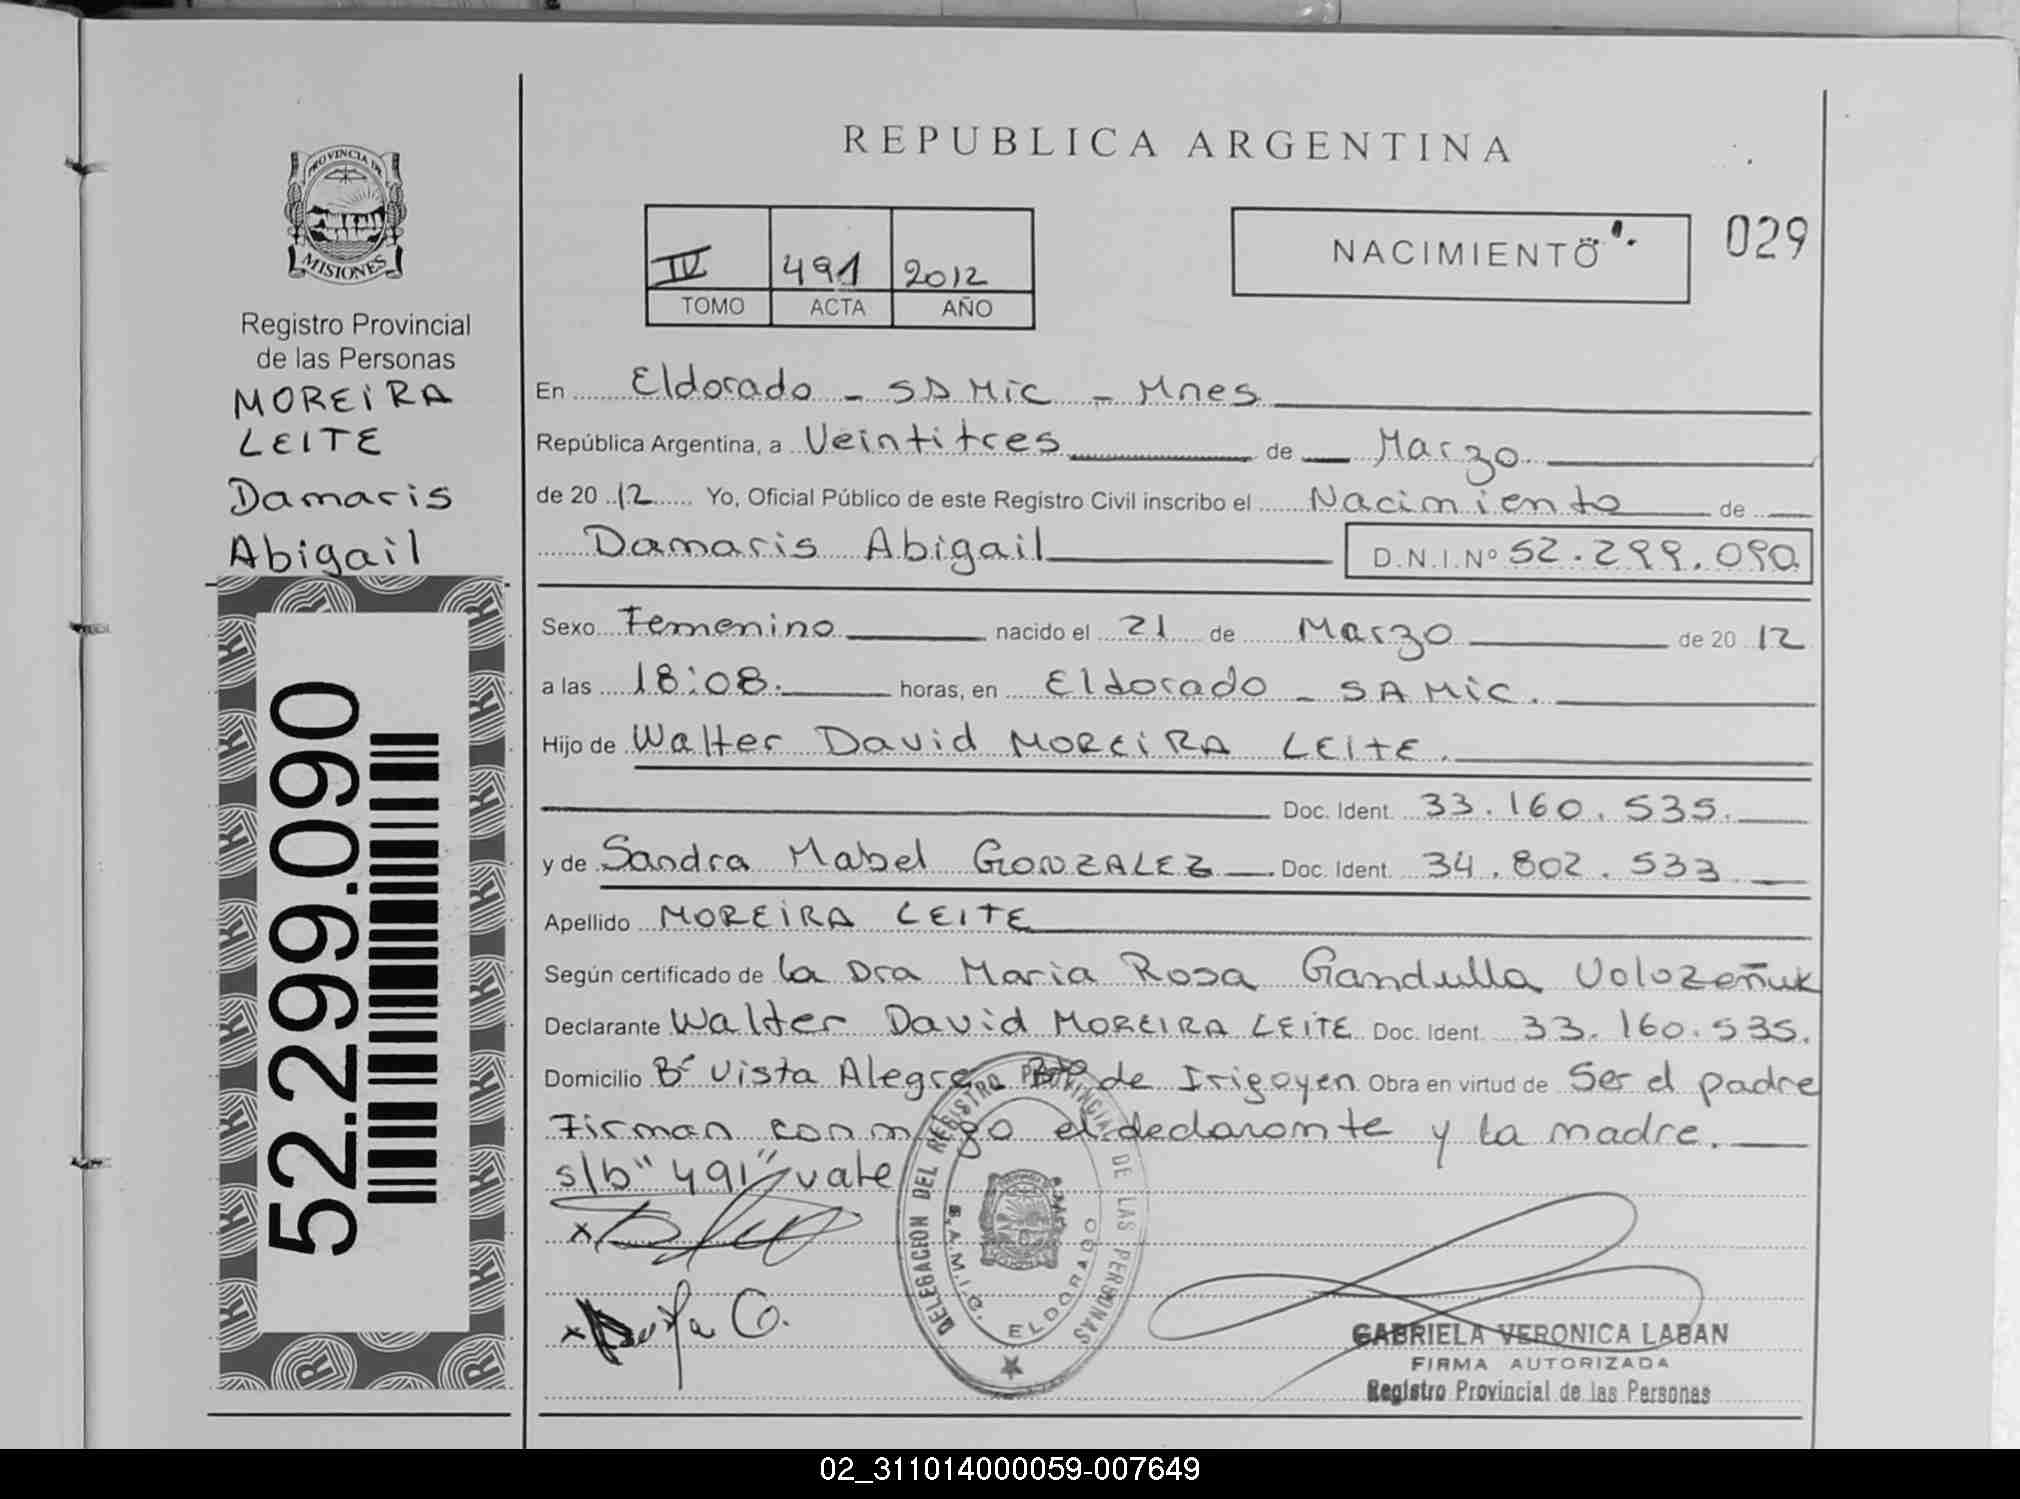 REPUBLICA ARGENTINA
PROVINCIA DE
MISIONES
Registro Provincial
de las Personas
MOREIRA
LEITE
Damaris
Abigail
52.299.090
IV 491 2012
TOMO ACTA AÑO
NACIMIENTO
029
En Eldorado - SAMIC - Mnes
República Argentina, a Veintitres de Marzo
de 2012 Yo, Oficial Público de este Registro Civil inscribo el Nacimiento de
Damaris Abigail D.N.I.Nº 52.299.090
Sexo Femenino nacido el 21 de Marzo de 2012
a las 18:08. horas, en Eldorado - SAMIC.
Hijo de Walter David MOREIRA LEITE.
Doc. Ident. 33.160.535.
y de Sandra Mabel GONZALEZ Doc. Ident. 34.802.533
Apellido MOREIRA LEITE
Según certificado de la Dra Maria Rosa Gandulla Volozeñuk
Declarante Walter David MOREIRA LEITE Doc. Ident. 33.160.535.
Domicilio Bº Vista Alegre. Bdo de Irigoyen Obra en virtud de Ser el padre
Firman conmigo el declarante y la madre.
s/b "491" vale
DELEGACION DEL REGISTRO PROVINCIAL DE LAS PERSONAS
S.A.M.I.C. ELDORADO
GABRIELA VERONICA LABAN
FIRMA AUTORIZADA
Registro Provincial de las Personas
02_311014000059-007649